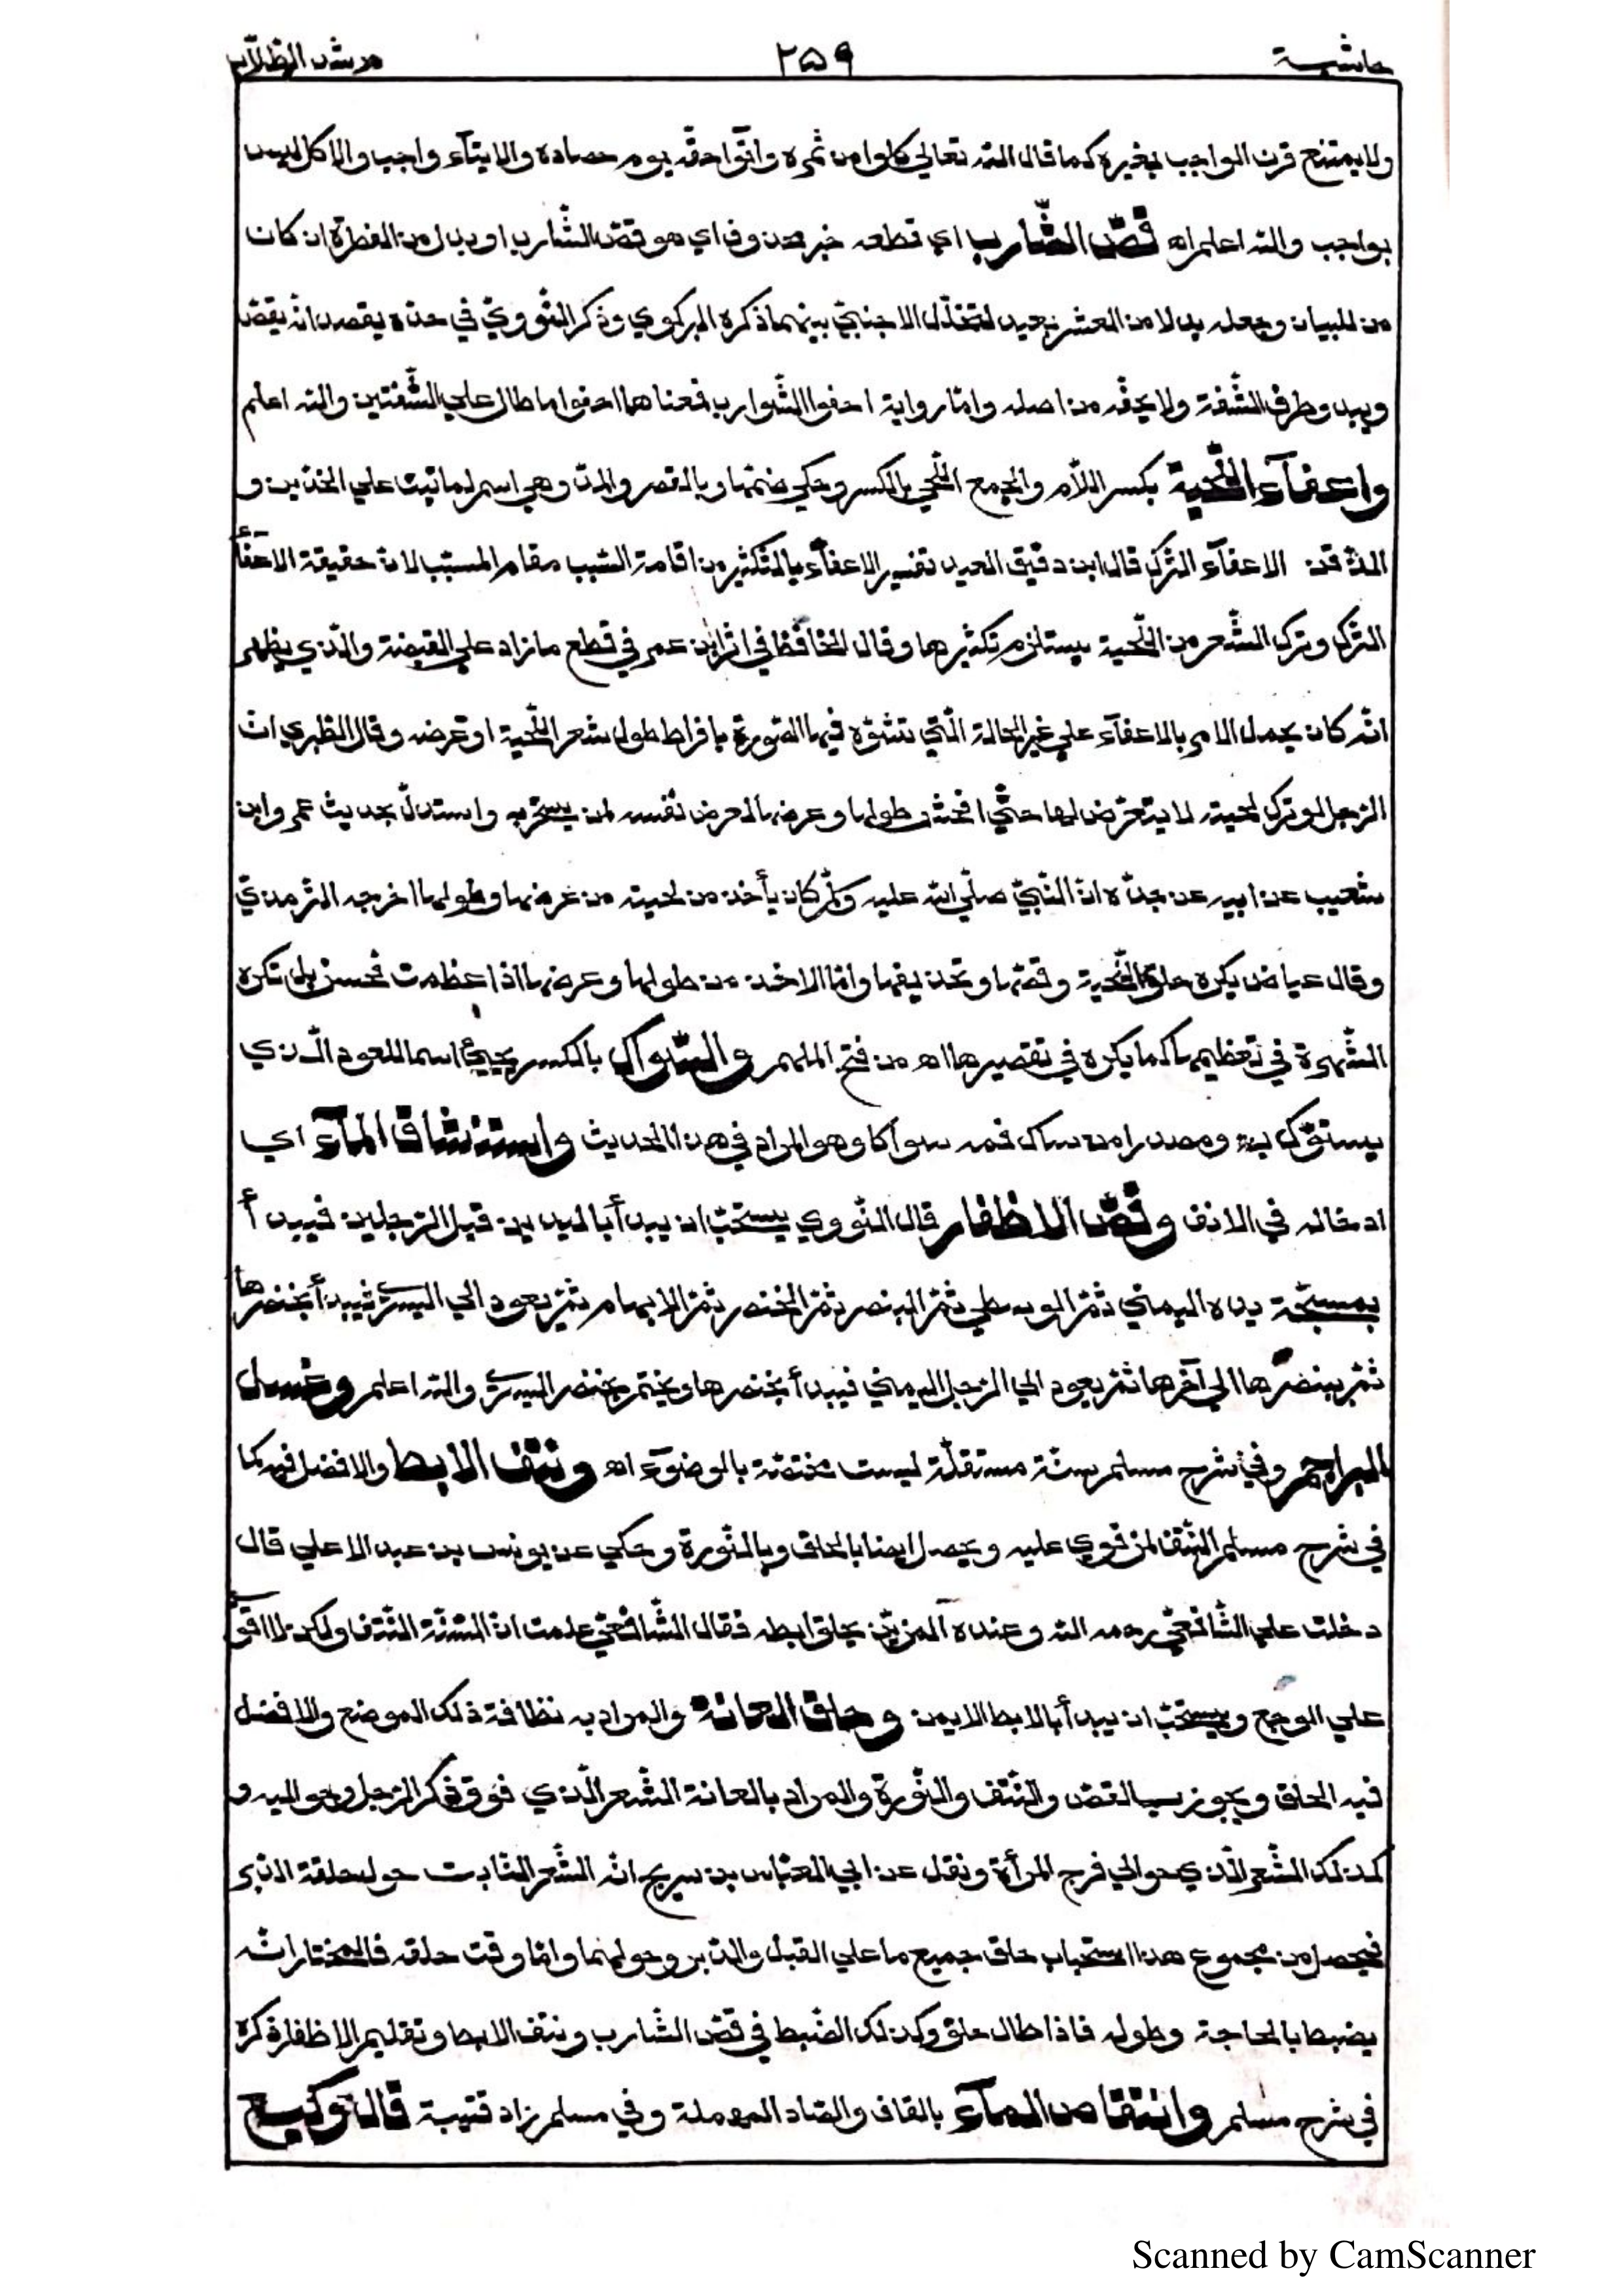 حاشية ٢٥٩ مرشد الطلاب
ولا يمتنع قرن الواجب بغيره كما قال الله تعالى كلوا من ثمره وآتوا حقه يوم حصاده والايتآء واجب والاكل ليس
بواجب والله اعلم اه قصّ الشّارب اي قطعه خبر محذوف اي هو قصّ الشّارب او بدل من الفطرة ان كان
من للبيان وجعله بدلا من العشر بعيد لتخلّل الاجنبيّ بينهما ذكره البركوي وذكر النّوويّ في حدّه يقصد انّه يقصّ
ويبدو طرف الشّفة ولا يحفّه من اصله وامّا رواية احفوا الشّوارب فمعناها احفوا ما طال علي الشّفتين والله اعلم
واعفآء اللّحية بكسر اللّام والجمع اللّحي بالكسر وحكي ضمّها وبالقصر والمدّ وهي اسم لما نبت علي الخدّين و
الذّقن الاعفآء التّرك قال ابن دقيق العيد تفسير الاعفآء بالتّكثير من اقامة السّبب مقام المسبّب لان حقيقة الاعفآء
التّرك وترك الشّعر من اللّحية يستلزم تكثيرها وقال الحافظ في اثر ابن عمر في قطع ما زاد علي القبضة والّذي يظهر
انّه كان يحمل الامر بالاعفآء علي غير الحالة الّتي تتشوّه فيها الصّورة بافراط طول شعر اللّحية او عرضه وقال الطّبري انّ
الرّجل لو ترك لحيته لا يتعرّض لها حتّي افحش طولها وعرضها لعرض نفسه لمن يسخر به واستدلّ بحديث عمرو ابن
شعيب عن ابيه عن جدّه انّ النّبيّ صلّي الله عليه وسلّم كان يأخذ من لحيته من عرضها وطولها اخرجه التّرمذيّ
وقال عياض يكره حلق اللّحية وقصّها وتحذيفها وامّا الاخذ من طولها وعرضها اذا عظمت فحسن بل تكره
الشّهرة في تعظيمها كما يكره في تقصيرها اه من فتح الملهم والسّواك بالكسر يجيئ اسما للعود الّذي
يستوّك به ومصدرا من ساك فمه سواكا وهو المراد في هذا الحديث واستنشاق المآء اي
ادخاله في الانف وقصّ الاظفار قال النّووي يستحبّ ان يبدأ باليدين قبل الرّجلين فيبدأ
بمسبّحة يده اليمني ثمّ الوسطي ثمّ البنصر ثمّ الخنصر ثمّ الابهام ثمّ يعود الي اليسري فيبدأ بخنصرها
ثمّ ببنصرها الي آخرها ثمّ يعود الي الرّجل اليمني فيبدأ بخنصرها ويختم بخنصر اليسري والله اعلم وغسل
البراجم وفي شرح مسلم سنّة مستقلّة ليست مختصّة بالوضوء اه ونتف الابط والافضل فيه كما
في شرح مسلم النّتف لمن قوي عليه ويحصل ايضا بالحلق وبالنّورة وحكي عن يونس بن عبد الاعلي قال
دخلت علي الشّافعيّ رحمه الله وعنده المزيّن يحلق ابطه فقال الشّافعيّ علمت انّ السّنّة النّتف ولكن لا اقوي
علي الوجع ويستحبّ ان يبدأ بالابط الايمن وحلق العانة والمراد به نظافة ذلك الموضع والافضل
فيه الحلق ويجوز بالقصّ والنّتف والنّورة والمراد بالعانة الشّعر الّذي فوق ذكر الرّجل وحواليه و
كذلك الشّعر الّذي حوالي فرج المرأة ونقل عن ابي العبّاس بن سريج انّه الشّعر النّابت حول حلقة الدّبر
فيحصل من مجموع هذا استحباب حلق جميع ما علي القبل والدّبر وحولهما وامّا وقت حلقه فالمختار انّه
يضبط بالحاجة وطوله فاذا طال حلق وكذلك الضّبط في قصّ الشّارب ونتف الابط وتقليم الاظفار ذكره
في شرح مسلم وانتقاص المآء بالقاف والصّاد المهملة وفي مسلم زاد قتيبة قال وكيع
Scanned by CamScanner